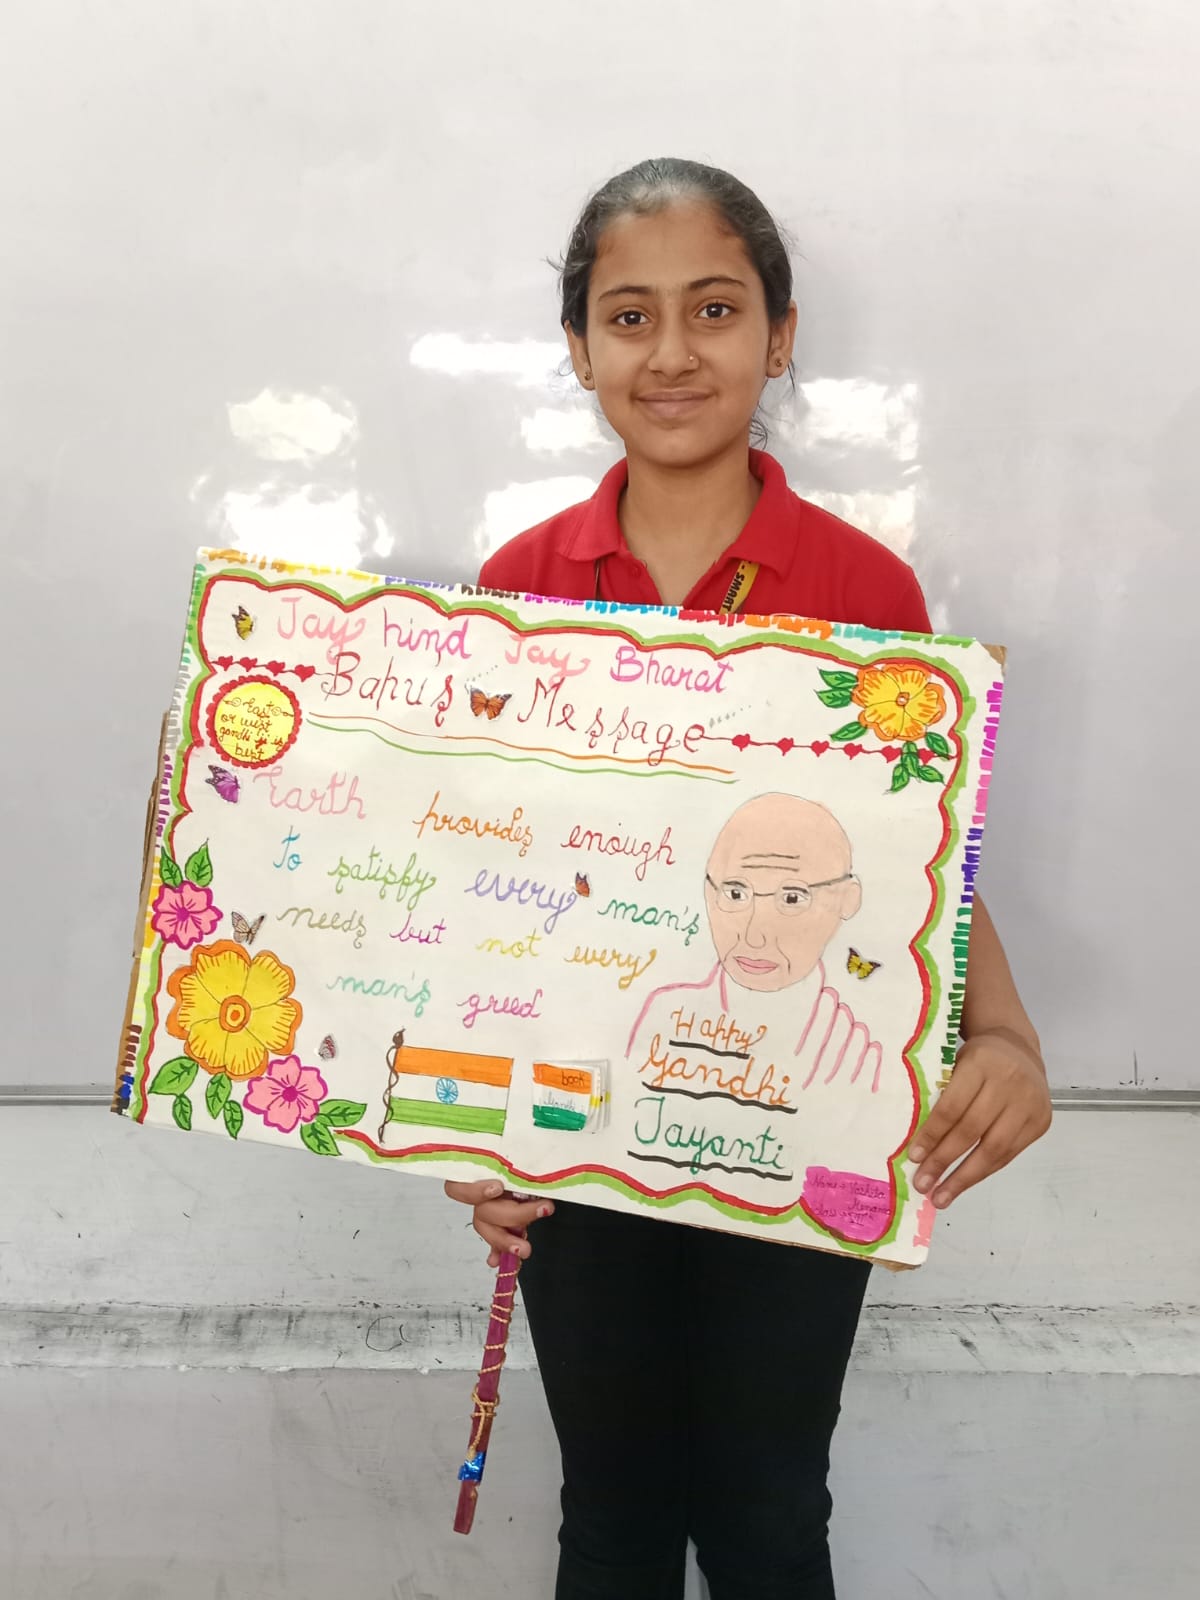 SMART
Jay hind Jay Bharat
Bapu's Message
East
or west
gandhi ji is
best
Earth provides enough
to satisfy every man's
needs but not every
man's greed
book
Happy
Gandhi
Jayanti
Name
class